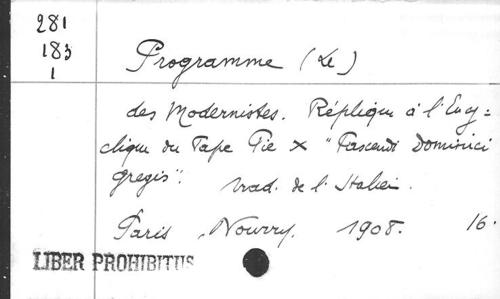 281
183
1
Programme (Le)
des Modernistes. Réplique à l'Ency=
clique du Pape Pie X "Pascendi Dominici
gregis". trad. de l'Italien.
Paris, Nourry. 1908. 16.
LIBER PROHIBITUS